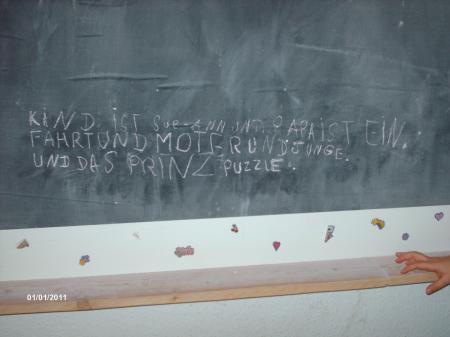 KIND. IST SUP ANN UND PAPA IST EIN.
FAHRT UND MOTE RUND JUNGE.
UND DAS PRINZ PUZZLE.
01/01/2011